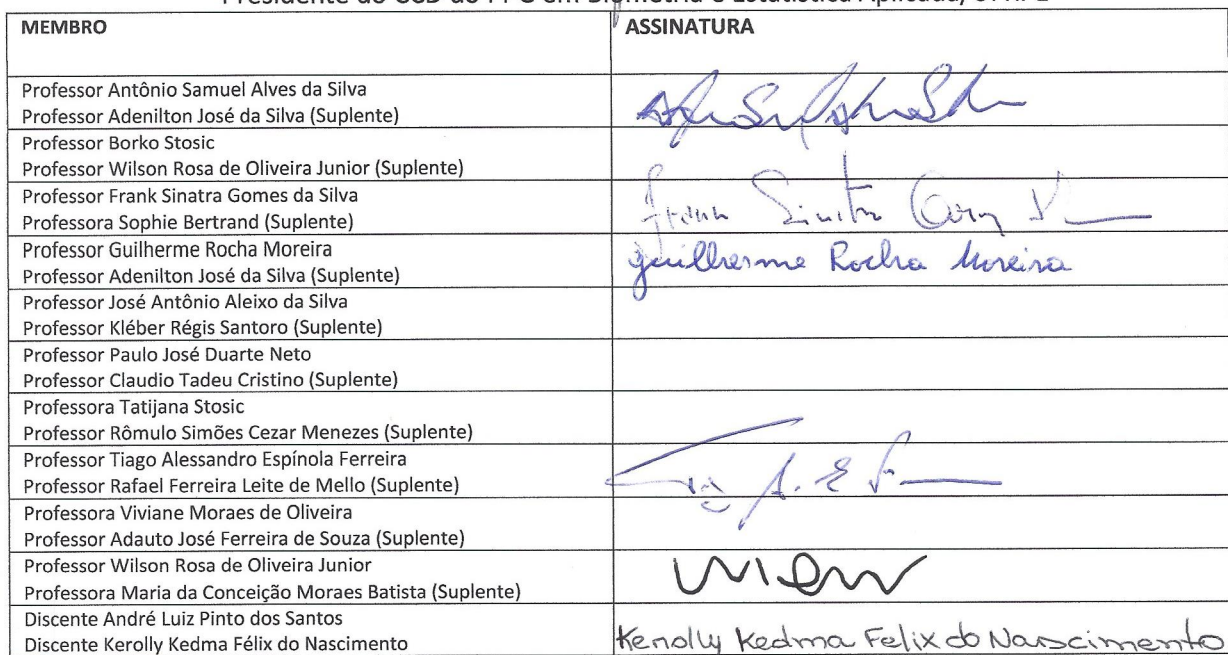 Presidente do CCD do PPG em Biometria e Estatística Aplicada/UFRPE
MEMBRO ASSINATURA
Professor Antônio Samuel Alves da Silva
Professor Adenilton José da Silva (Suplente)
Professor Borko Stosic
Professor Wilson Rosa de Oliveira Junior (Suplente)
Professor Frank Sinatra Gomes da Silva
Professora Sophie Bertrand (Suplente)
Frank Sinatra Gomes
Professor Guilherme Rocha Moreira
Guilherme Rocha Moreira
Professor Adenilton José da Silva (Suplente)
Professor José Antônio Aleixo da Silva
Professor Kléber Régis Santoro (Suplente)
Professor Paulo José Duarte Neto
Professor Claudio Tadeu Cristino (Suplente)
Professora Tatijana Stosic
Professor Rômulo Simões Cezar Menezes (Suplente)
Professor Tiago Alessandro Espínola Ferreira
Professor Rafael Ferreira Leite de Mello (Suplente)
Professora Viviane Moraes de Oliveira
Professor Adauto José Ferreira de Souza (Suplente)
Professor Wilson Rosa de Oliveira Junior
Professora Maria da Conceição Moraes Batista (Suplente)
Discente André Luiz Pinto dos Santos
Discente Kerolly Kedma Félix do Nascimento
Kerolly Kedma Felix do Nascimento